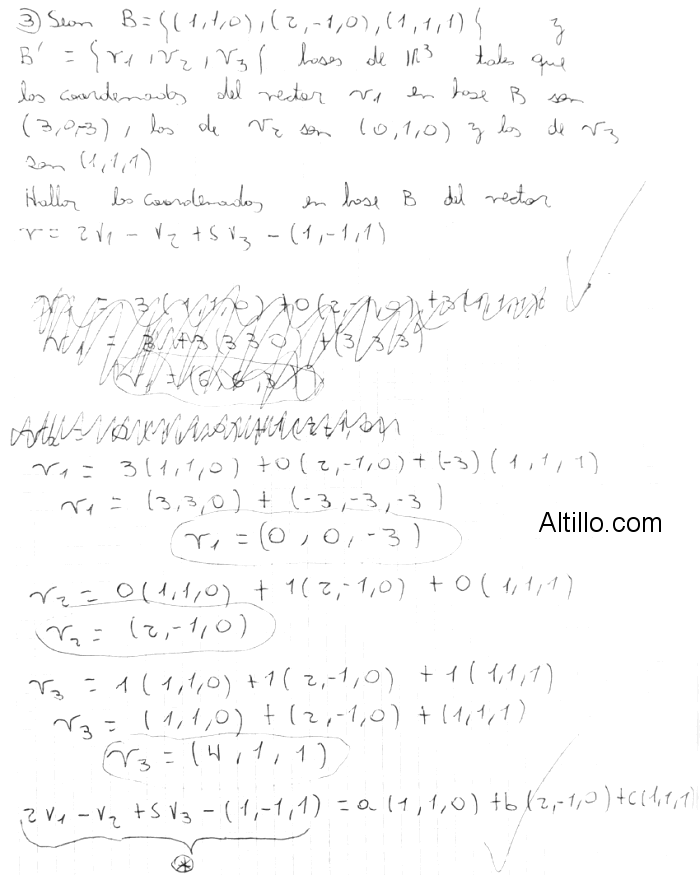 ③ Sean B = {(1,1,0), (2,-1,0), (1,1,1)} y
B' = {v1, v2, v3} bases de IR³ tales que
las coordenadas del vector v1 en base B son
(3,0,-3), las de v2 son (0,1,0) y las de v3
son (1,1,1)
Hallar las coordenadas en base B del vector
v = 2v1 - v2 + 5v3 - (1,-1,1)
v1 = 3(1,1,0) + 0(2,-1,0) + (-3)(1,1,1)
v1 = (3,3,0) + (-3,-3,-3)
v1 = (0,0,-3)
Altillo.com
v2 = 0(1,1,0) + 1(2,-1,0) + 0(1,1,1)
v2 = (2,-1,0)
v3 = 1(1,1,0) + 1(2,-1,0) + 1(1,1,1)
v3 = (1,1,0) + (2,-1,0) + (1,1,1)
v3 = (4,1,1)
2v1 - v2 + 5v3 - (1,-1,1) = a(1,1,0) + b(2,-1,0) + c(1,1,1)
⊛